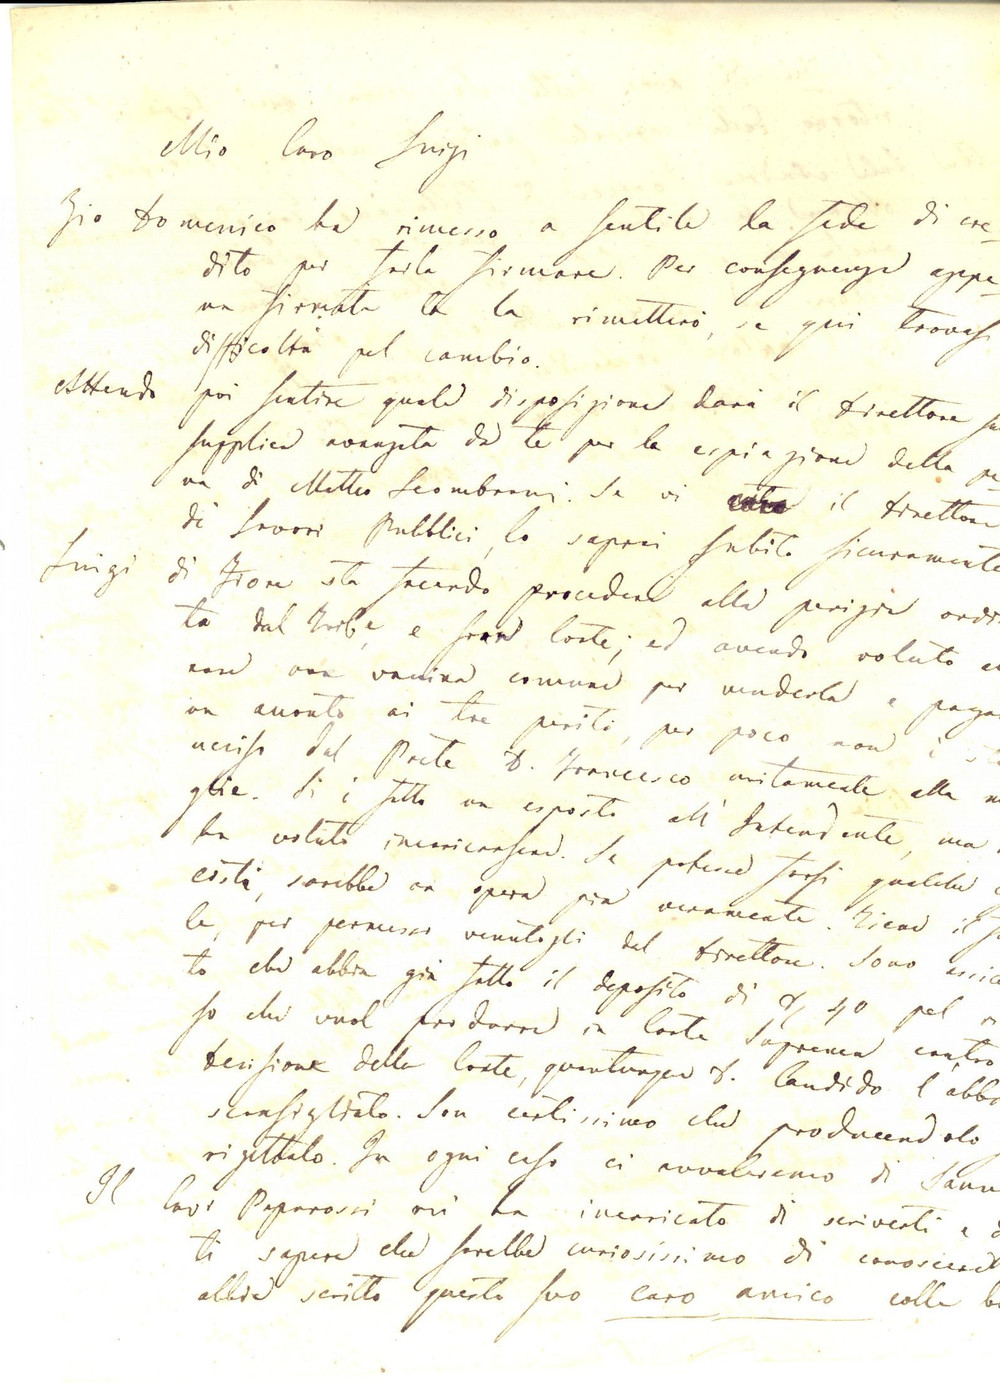 Mio Caro Luigi
Zio Domenico ha rimesso a Gentile la fede di cre-
dito per farla firmare. Per conseguenza appe-
na firmata te la rimetterò, se qui trovasi
difficoltà pel cambio.
Attendo poi sentire quale disposizione darà il Direttore su
supplica avanzata da te per la espiazione della pe-
na di Matteo Scombrani. Se vi il Direttore
di Lavori Pubblici, lo saprai subito sicuramente
Luigi di Fiore sta facendo procedere alla perizia ordi
ta dal Trib.e, e Gran Corte; ed avendo voluto
nare una vaccina comune per venderla e paga
un acconto ai tre periti, per poco non è sta
ucciso dal Prete D. Francesco unitamente alla m
glie. Si è fatto un esposto all' Intendente, ma
ha voluto incaricarsene. Se potesse farsi qualche
costà, sarebbe un opera pia veramente. Tiene il
le, per permesso venutogli dal Direttore. Sono assicu
to che abbia già fatto il deposito di D. 40 pel ri
so che vuol produrre in Corte Suprema contro
decisione della Corte, quantunque D. Candido l'abbia
sconsigliato. Son certissimo che producendolo
rigettato. In ogni caso ci avvaleremo di
Il Cav.r Paparossi mi ha incaricato di scriverti e
ti sapere che sarebbe curiosissimo di conoscere
abbia scritto questo suo caro amico colle